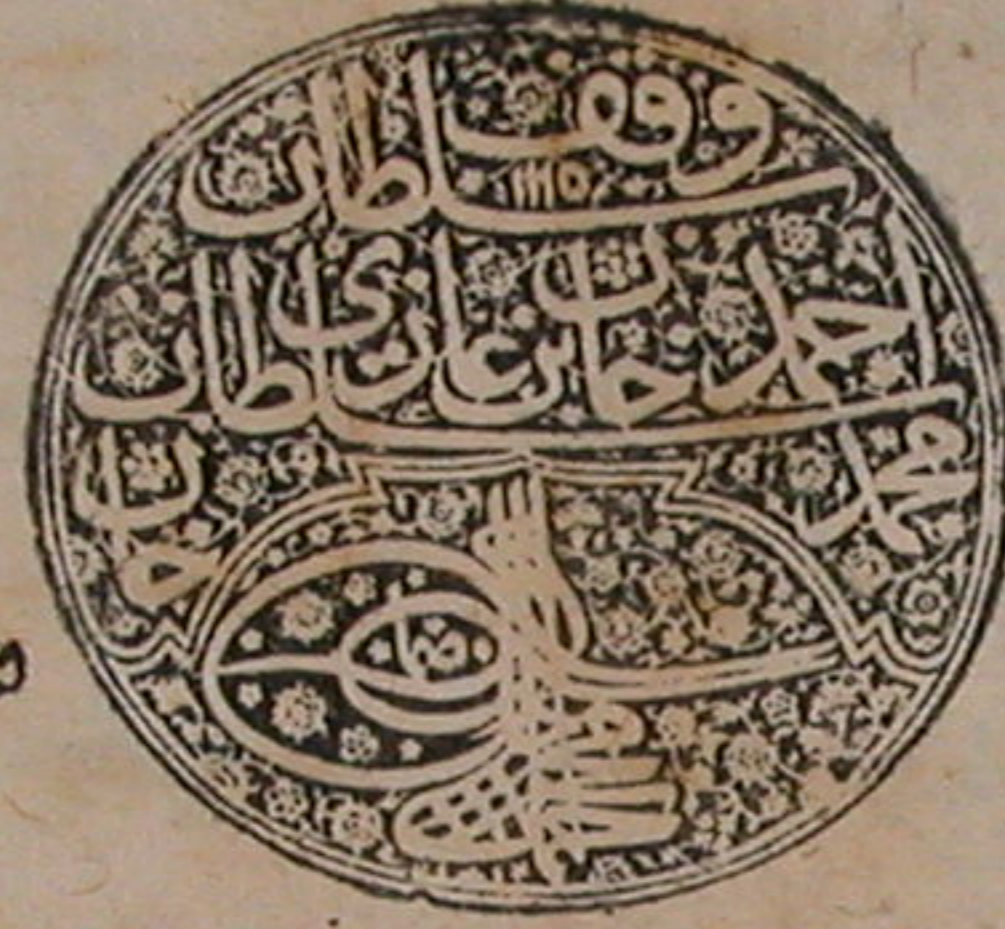 وقف سلطان
١١١٥
احمد خان بن غازى سلطان
محمد خان